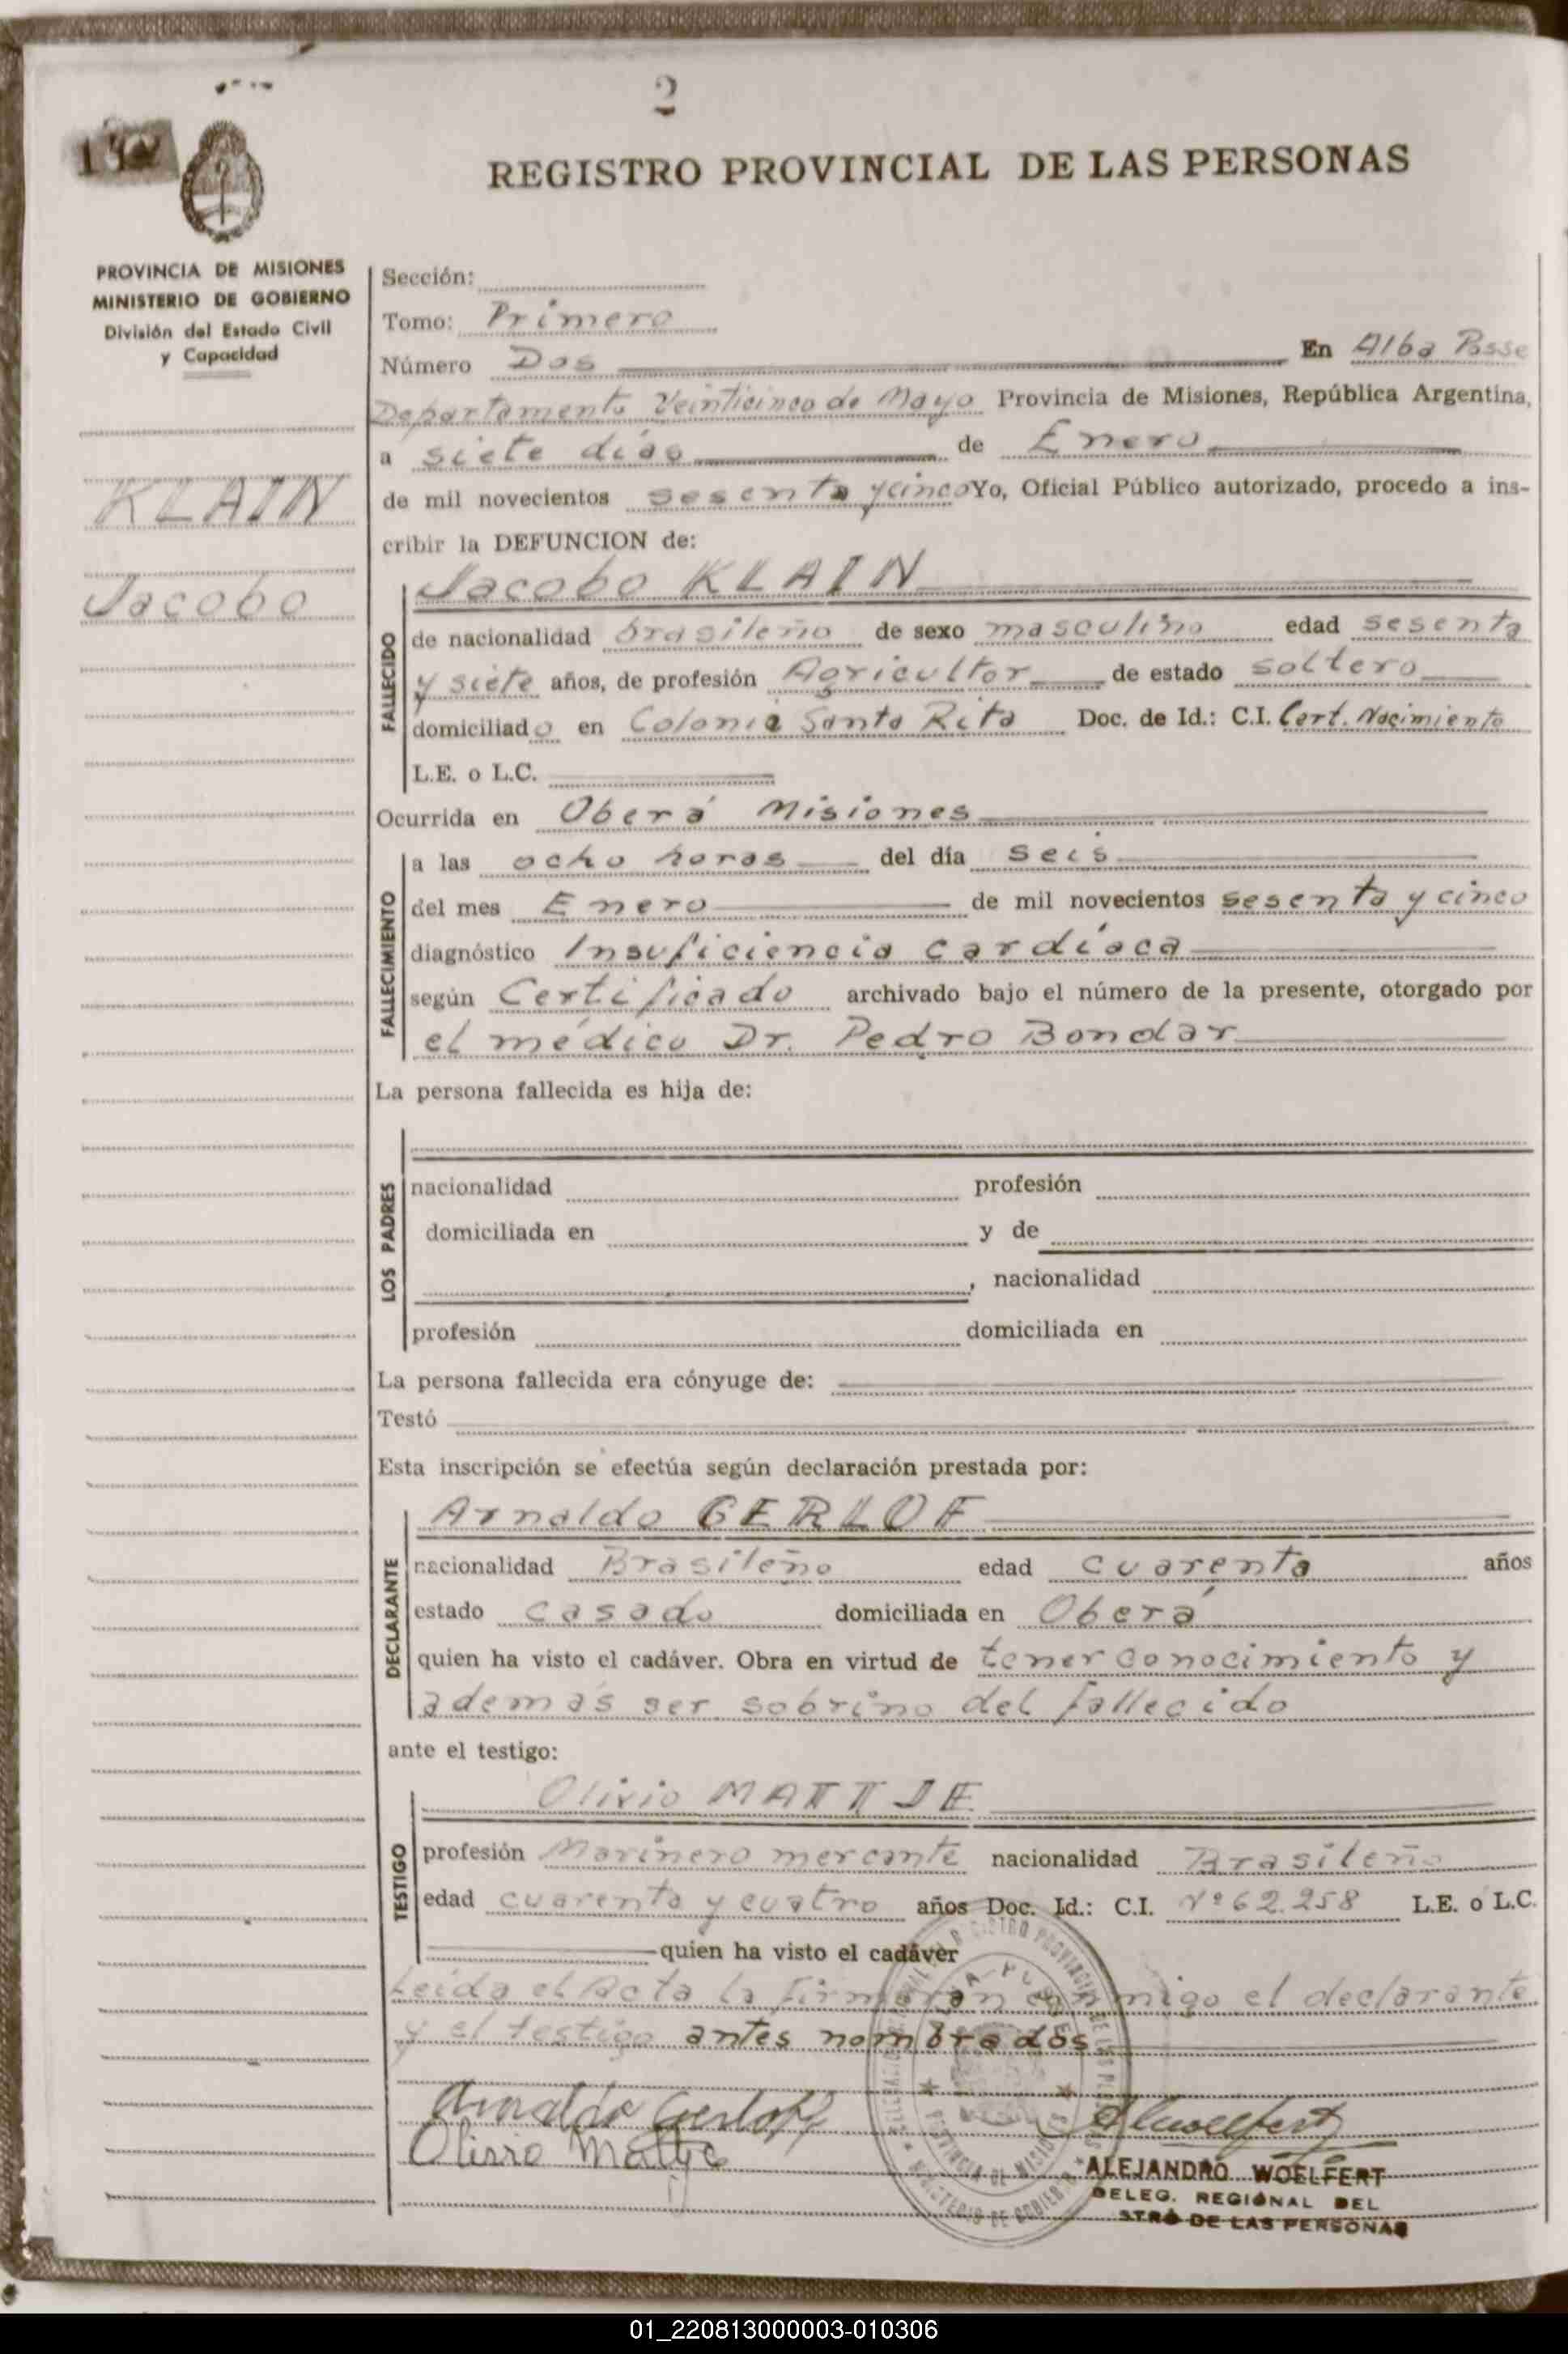 2
REGISTRO PROVINCIAL DE LAS PERSONAS
PROVINCIA DE MISIONES
MINISTERIO DE GOBIERNO
División del Estado Civil
y Capacidad
KLAIN
Jacobo
Sección:
Tomo: Primero
Número Dos En Alba Posse
Departamento Veinticinco de Mayo Provincia de Misiones, República Argentina,
a siete días de Enero
de mil novecientos sesenta y cinco Yo, Oficial Público autorizado, procedo a ins-
cribir la DEFUNCION de:
Jacobo KLAIN
FALLECIDO
de nacionalidad brasileño de sexo masculino edad sesenta
y siete años, de profesión Agricultor de estado soltero
domiciliado en Colonia Santa Rita Doc. de Id.: C.I. Cert. Nacimiento
L.E. o L.C.
Ocurrida en Oberá Misiones
FALLECIMIENTO
a las ocho horas del día seis
del mes Enero de mil novecientos sesenta y cinco
diagnóstico Insuficiencia cardíaca
según Certificado archivado bajo el número de la presente, otorgado por
el médico Dr. Pedro Bondar
La persona fallecida es hija de:
LOS PADRES
nacionalidad profesión
domiciliada en y de
, nacionalidad
profesión domiciliada en
La persona fallecida era cónyuge de:
Testó
Esta inscripción se efectúa según declaración prestada por:
Arnaldo GERLOF
DECLARANTE
nacionalidad Brasileño edad cuarenta años
estado casado domiciliada en Oberá
quien ha visto el cadáver. Obra en virtud de tener conocimiento y
además ser sobrino del fallecido
ante el testigo:
Olivio MATTJE
TESTIGO
profesión Marinero mercante nacionalidad Brasileño
edad cuarenta y cuatro años Doc. Id.: C.I. Nº 62.258 L.E. o L.C.
quien ha visto el cadáver
Leída el Acta la firmarán conmigo el declarante
y el testigo antes nombrados
Arnaldo Gerloff
Olivio Mattje
ALEJANDRO WOELFERT
DELEG. REGIONAL DEL
STRO DE LAS PERSONAS
01_220813000003-010306